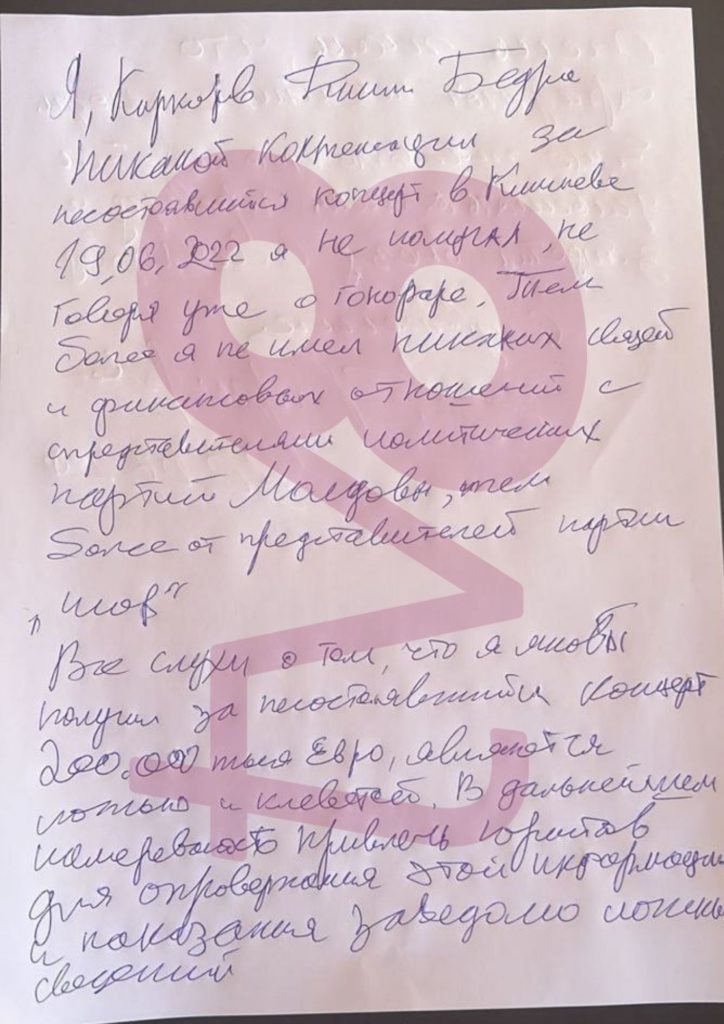 Я, Киркоров Филип Бедрос
Никакой компенсации за
несостоявшийся концерт в Кишинёве
19,06,2022 я не получал, не
говоря уже о гонораре. Тем
более я не имел никаких связей
и финансовых отношений с
представителями политических
партий Молдовы, тем
более от представителей партии
„Шор"
Все слухи о том, что я якобы
получил за несостоявшийся концерт
200.000 тыся Евро, являются
ложью и клеветой. В дальнейшем
намереваюсь привлечь юристов
для опровержения этой информации
и показания заведомо ложных
сведений